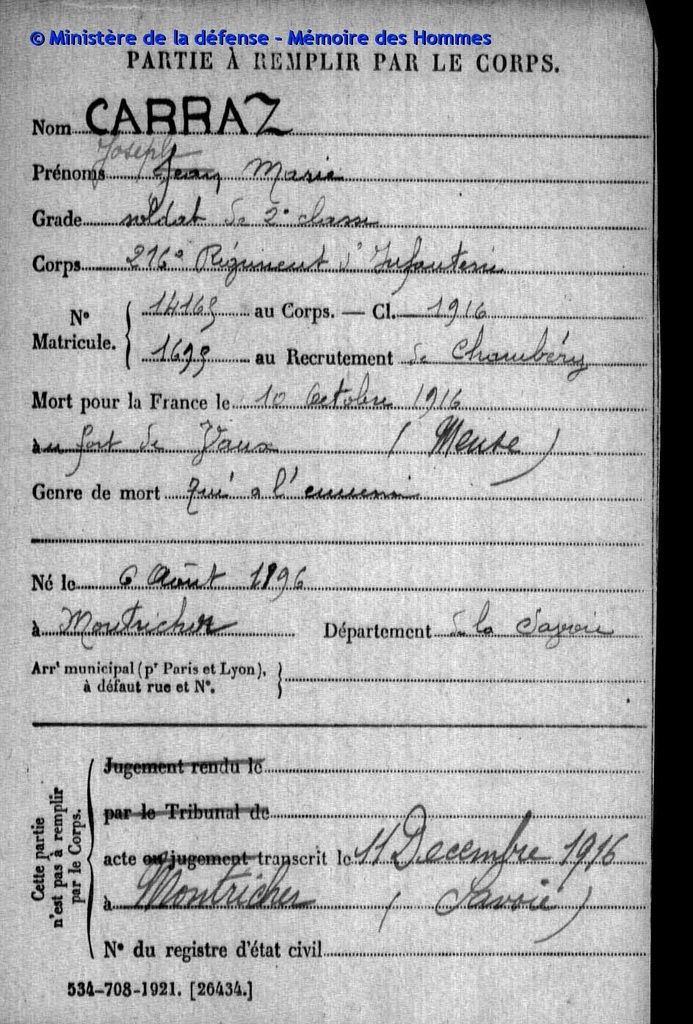 © Ministère de la défense - Mémoire des Hommes
PARTIE À REMPLIR PAR LE CORPS.
Nom CARRAZ
Joseph
Prénoms Jean Marie
Grade soldat de 2e classe
Corps 216e Régiment d'Infanterie
N° Matricule. { 14165 au Corps. — Cl. 1916
1695 au Recrutement de Chambéry
Mort pour la France le 10 Octobre 1916
au fort de Vaux (Meuse)
Genre de mort tué a l'ennemi
Né le 6 Août 1896
à Montricher Département de la Savoie
Arrt municipal (pr Paris et Lyon), à défaut rue et N°. }
Cette partie n'est pas à remplir par le Corps.
Jugement rendu le
par le Tribunal de
acte ou jugement transcrit le 11 Decembre 1916
à Montricher (Savoie)
N° du registre d'état civil
534-708-1921. [26434.]